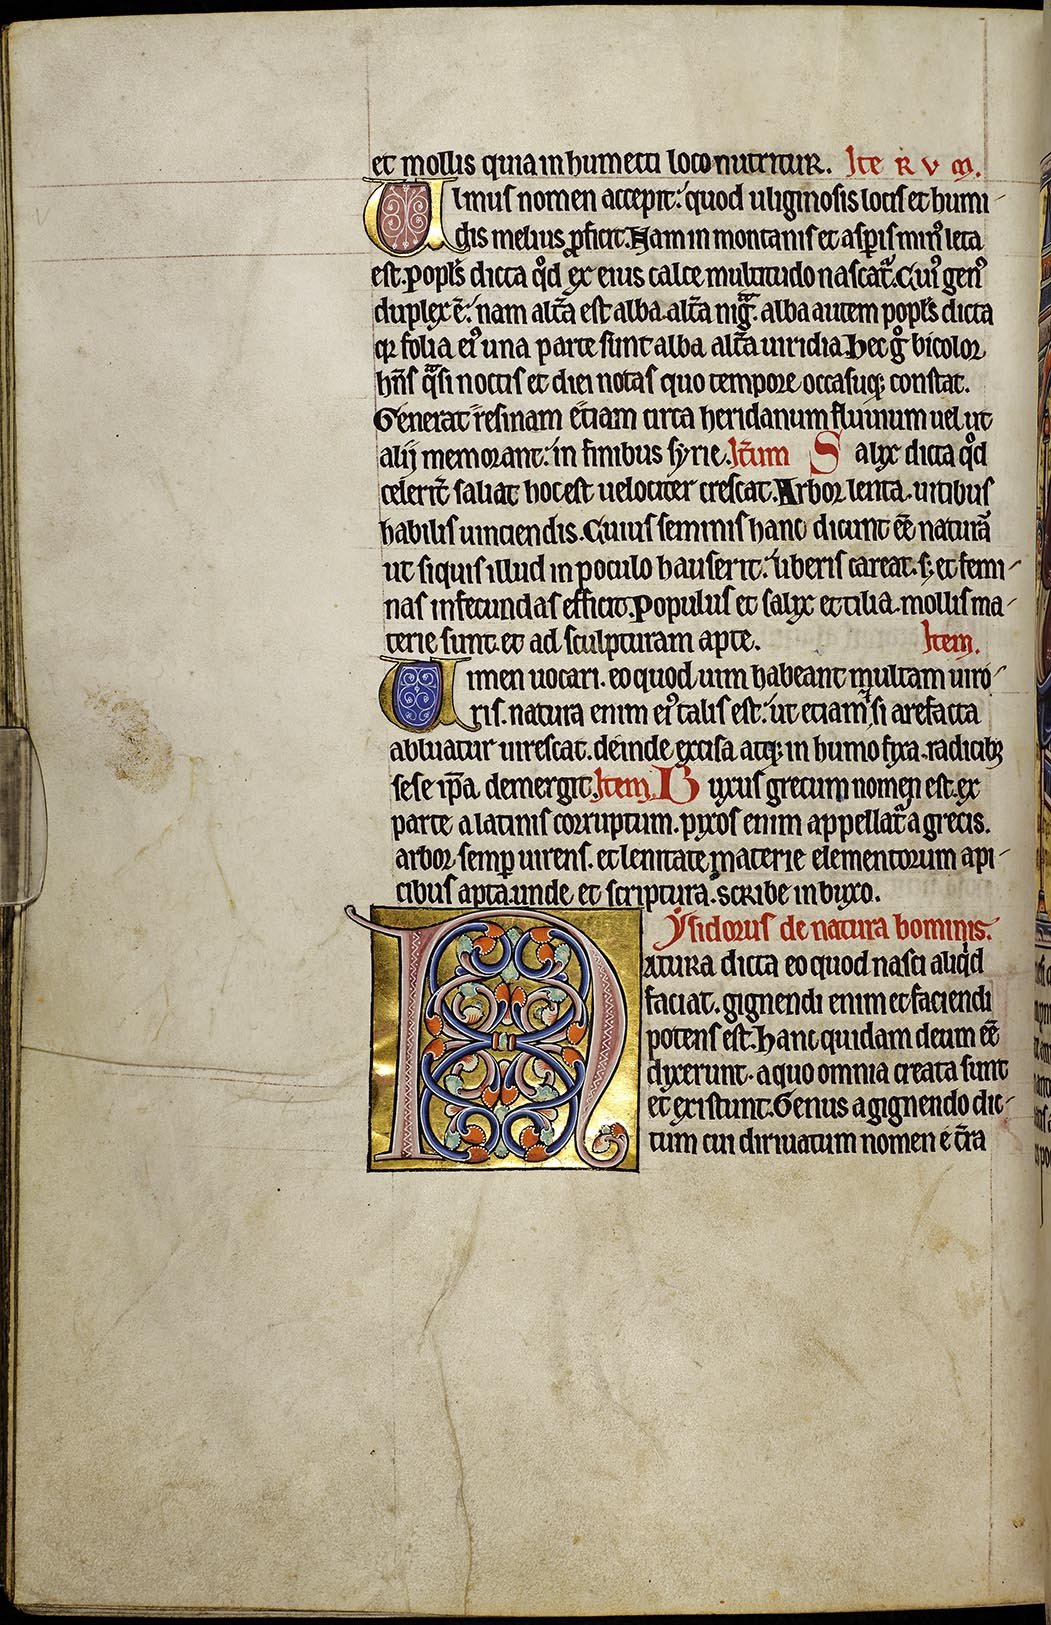 et mollis quia in humecti loco nutritur. Ite R V M.
Ulmus nomen accepit: quod uliginosis locis et humi
dis melius ꝓficit. Nam in montanis et asꝑis min᾿ leta
est. Popłs dicta qd̊ ex eius calce multitudo nascat᷑. Cui᾿ gen᾿
duplex ē: nam alt̄a est alba. alt̄a nigͣ. alba autem popłs dicta
qꝛ folia ei᾿ una parte sunt alba alt̄a uiridia Hec g̊ bicolor
hn̄s qͣsi noctis et diei notas quo tempore occasuqꝫ constat.
Generat resinam etiam circa heridanum fluuium uel ut
alij memorant: in finibus syrie. It̄um Salix dicta qd̊
celerit̄ saliat hoc est uelociter crescat. Arbor lenta. uitibus
habilis uinciendis. Cuius seminis hanc dicunt eē̄ naturā
ut siquis illud in poculo hauserit: liberis careat. s; et femi
nas infecundas efficit. Populus et salix et tilia. mollis ma
terie sunt. et ad sculpturam apte. Item.
Uimen uocari. eo quod uim habeant multam uiro
ris. natura enim ei᾿ talis est: ut etiam si arefacta
abluatur uirescat. deinde excisa atqꝫ in humo fixa. radicibꝫ
sese ip̄a demergit. Item. Buxus grecum nomen est. ex
parte a latinis corruptum. pixos enim appellat᷑ a grecis.
arbor semꝑ uirens. et lenitate materie elementorum api
cibus apta. unde et scriptura. scribe in buxo.
Ysidorus de natura hominis.
Natura dicta eo quod nasci aliqͥd
faciat. gignendi enim et faciendi
potens est. Hanc quidam deum eē̄
dixerunt. a quo omnia creata sunt
et existunt. Genus a gignendo dic
tum cui diriuatum nomen ē t̄ra